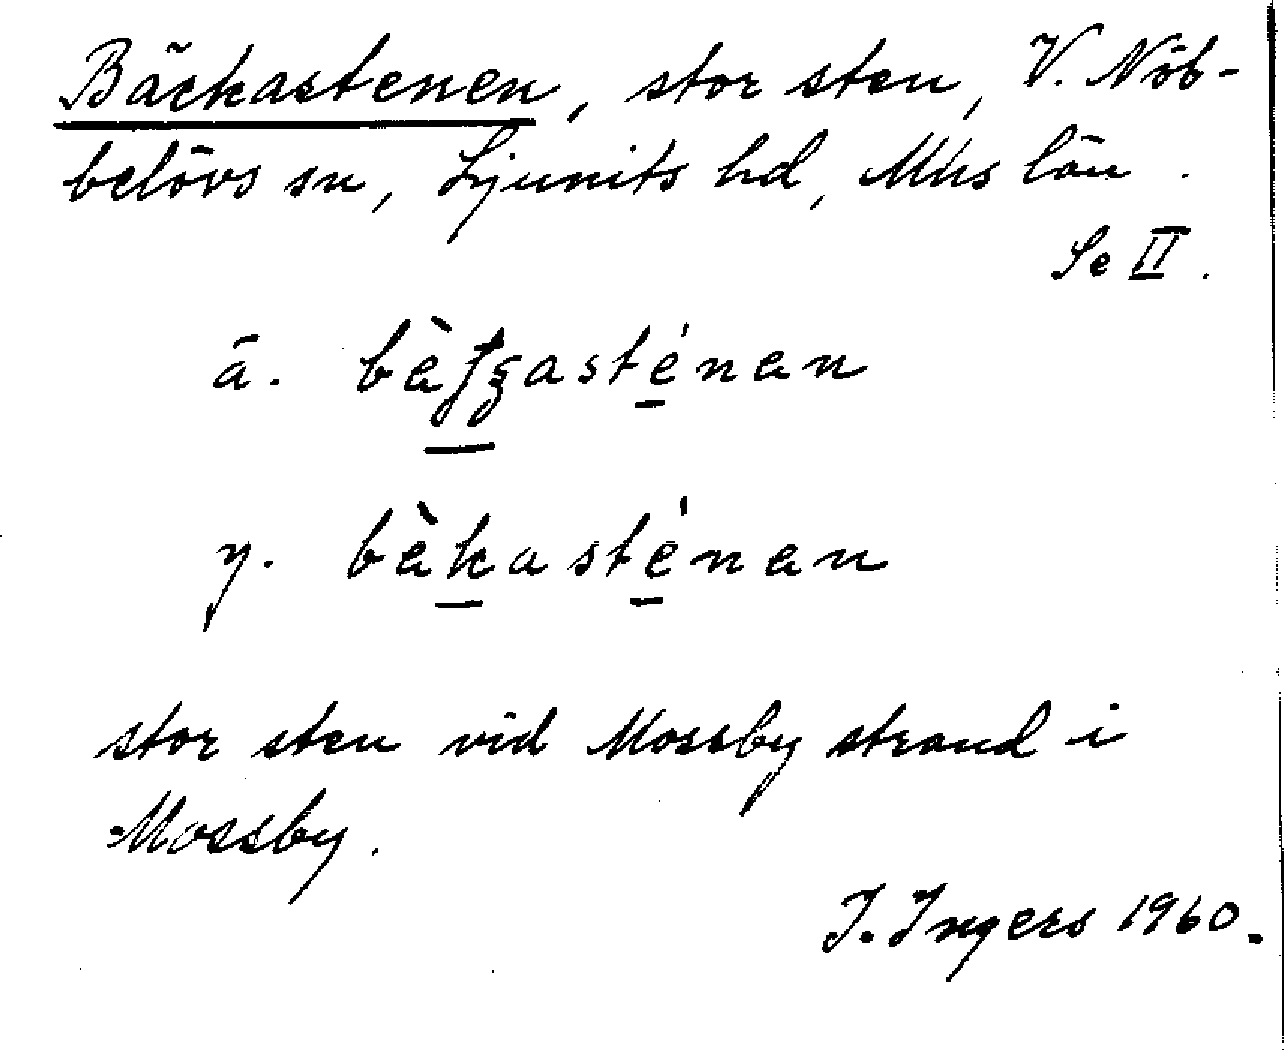 Bäckastenen, stor sten, V. Nöb-
belövs sn, Ljunits hd, Mhs län.
Se II.
ä.
y. bèkasténan
stor sten vid Mossby strand i
Mossby.
I. Ingers 1960.